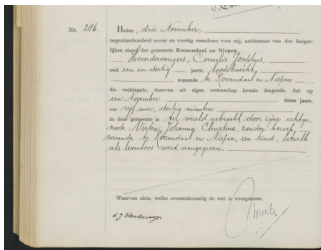 Nr. 286
Heden, drie November
negentienhonderd zeven en veertig verscheen voor mij, ambtenaar van den burger-
lijken stand der gemeente Roosendaal en Nispen,
Cornelis
oud een en dertig jaren,
wonende te Roosendaal en Nispen
die verklaarde, daarvan uit eigen wetenschap kennis dragende, dat op
een November dezes jaars,
om vijf ure, dertig minuten
in deze gemeente is ter wereld gebracht door zijne echtge-
noote Johanna Christina, zonder beroep,
wonende te Roosendaal en Nispen, een kind, hetwelk
als levenloos word aangegeven.
Waarvan akte, welke overeenkomstig de wet is voorgelezen.